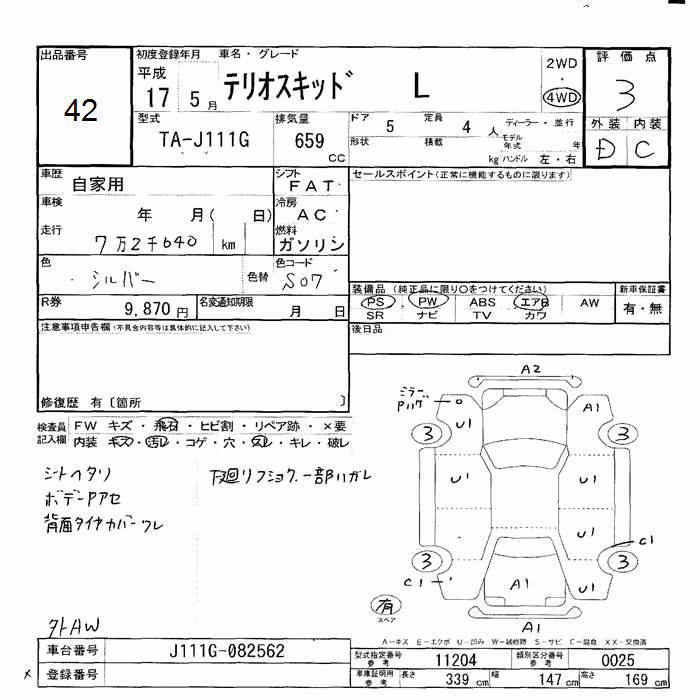 出品番号
42
初度登録年月 車名・グレード
平成
17 5月 テリオスキッド L
2WD
・
4WD
評価点
3
外装 内装
D C
型式 排気量 ドア 定員 ディーラー・並行
TA-J111G 659 cc 5 4人
形状 積載 kg モデル年式 年
ハンドル 左・右
車歴 シフト セールスポイント(正常に機能するものに限ります)
自家用 FAT
車検 冷房
年 月( 日) AC
走行 燃料
7万2千640 km ガソリン
色 色替 色コード
シルバー S07
装備品 (純正品に限り○をつけてください) 新車保証書
PS PW ABS エアB AW 有・無
SR ナビ TV カワ
R券 名変通知期限
9,870円 月 日
後日品
注意事項申告欄(不具合内容等は具体的に記入して下さい)
修復歴 有〔箇所 〕
検査員記入欄
FW キズ・飛石・ヒビ割・リペア跡・×要
内装 キズ・汚レ・コゲ・穴・スレ・キレ・破レ
シートヘタリ 下廻リフショク.一部ハガレ
ボデーPアセ
背面タイヤカバーワレ
外AW
A2
ミラーPハゲ
U1 A1
3 3
U1 U1
U1
3 3
C1
C1 A1 U1
有
スペア
A1
A-キズ E-エクボ U-凹み W-補修跡 S-サビ C-腐食 XX-交換済
車台番号 J111G-082562
登録番号
型式指定番号参考 11204 類別区分番号参考 0025
車庫証明用参考 長さ 339cm 幅 147cm 高さ 169cm